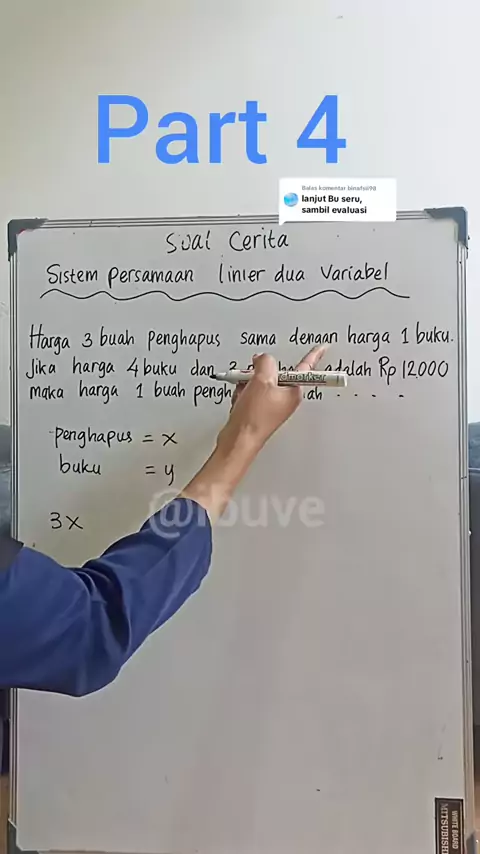 Part 4
Balas komentar
lanjut Bu seru,
sambil evaluasi
Soal Cerita
Sistem Persamaan linier dua Variabel
Harga 3 buah Penghapus sama dengan harga 1 buku.
Jika harga 4 buku dan adalah Rp 12.000
maka harga 1 buah
penghapus = x
buku = y
3x
@ibuve
WHITE BOARD
MITSUBISHI